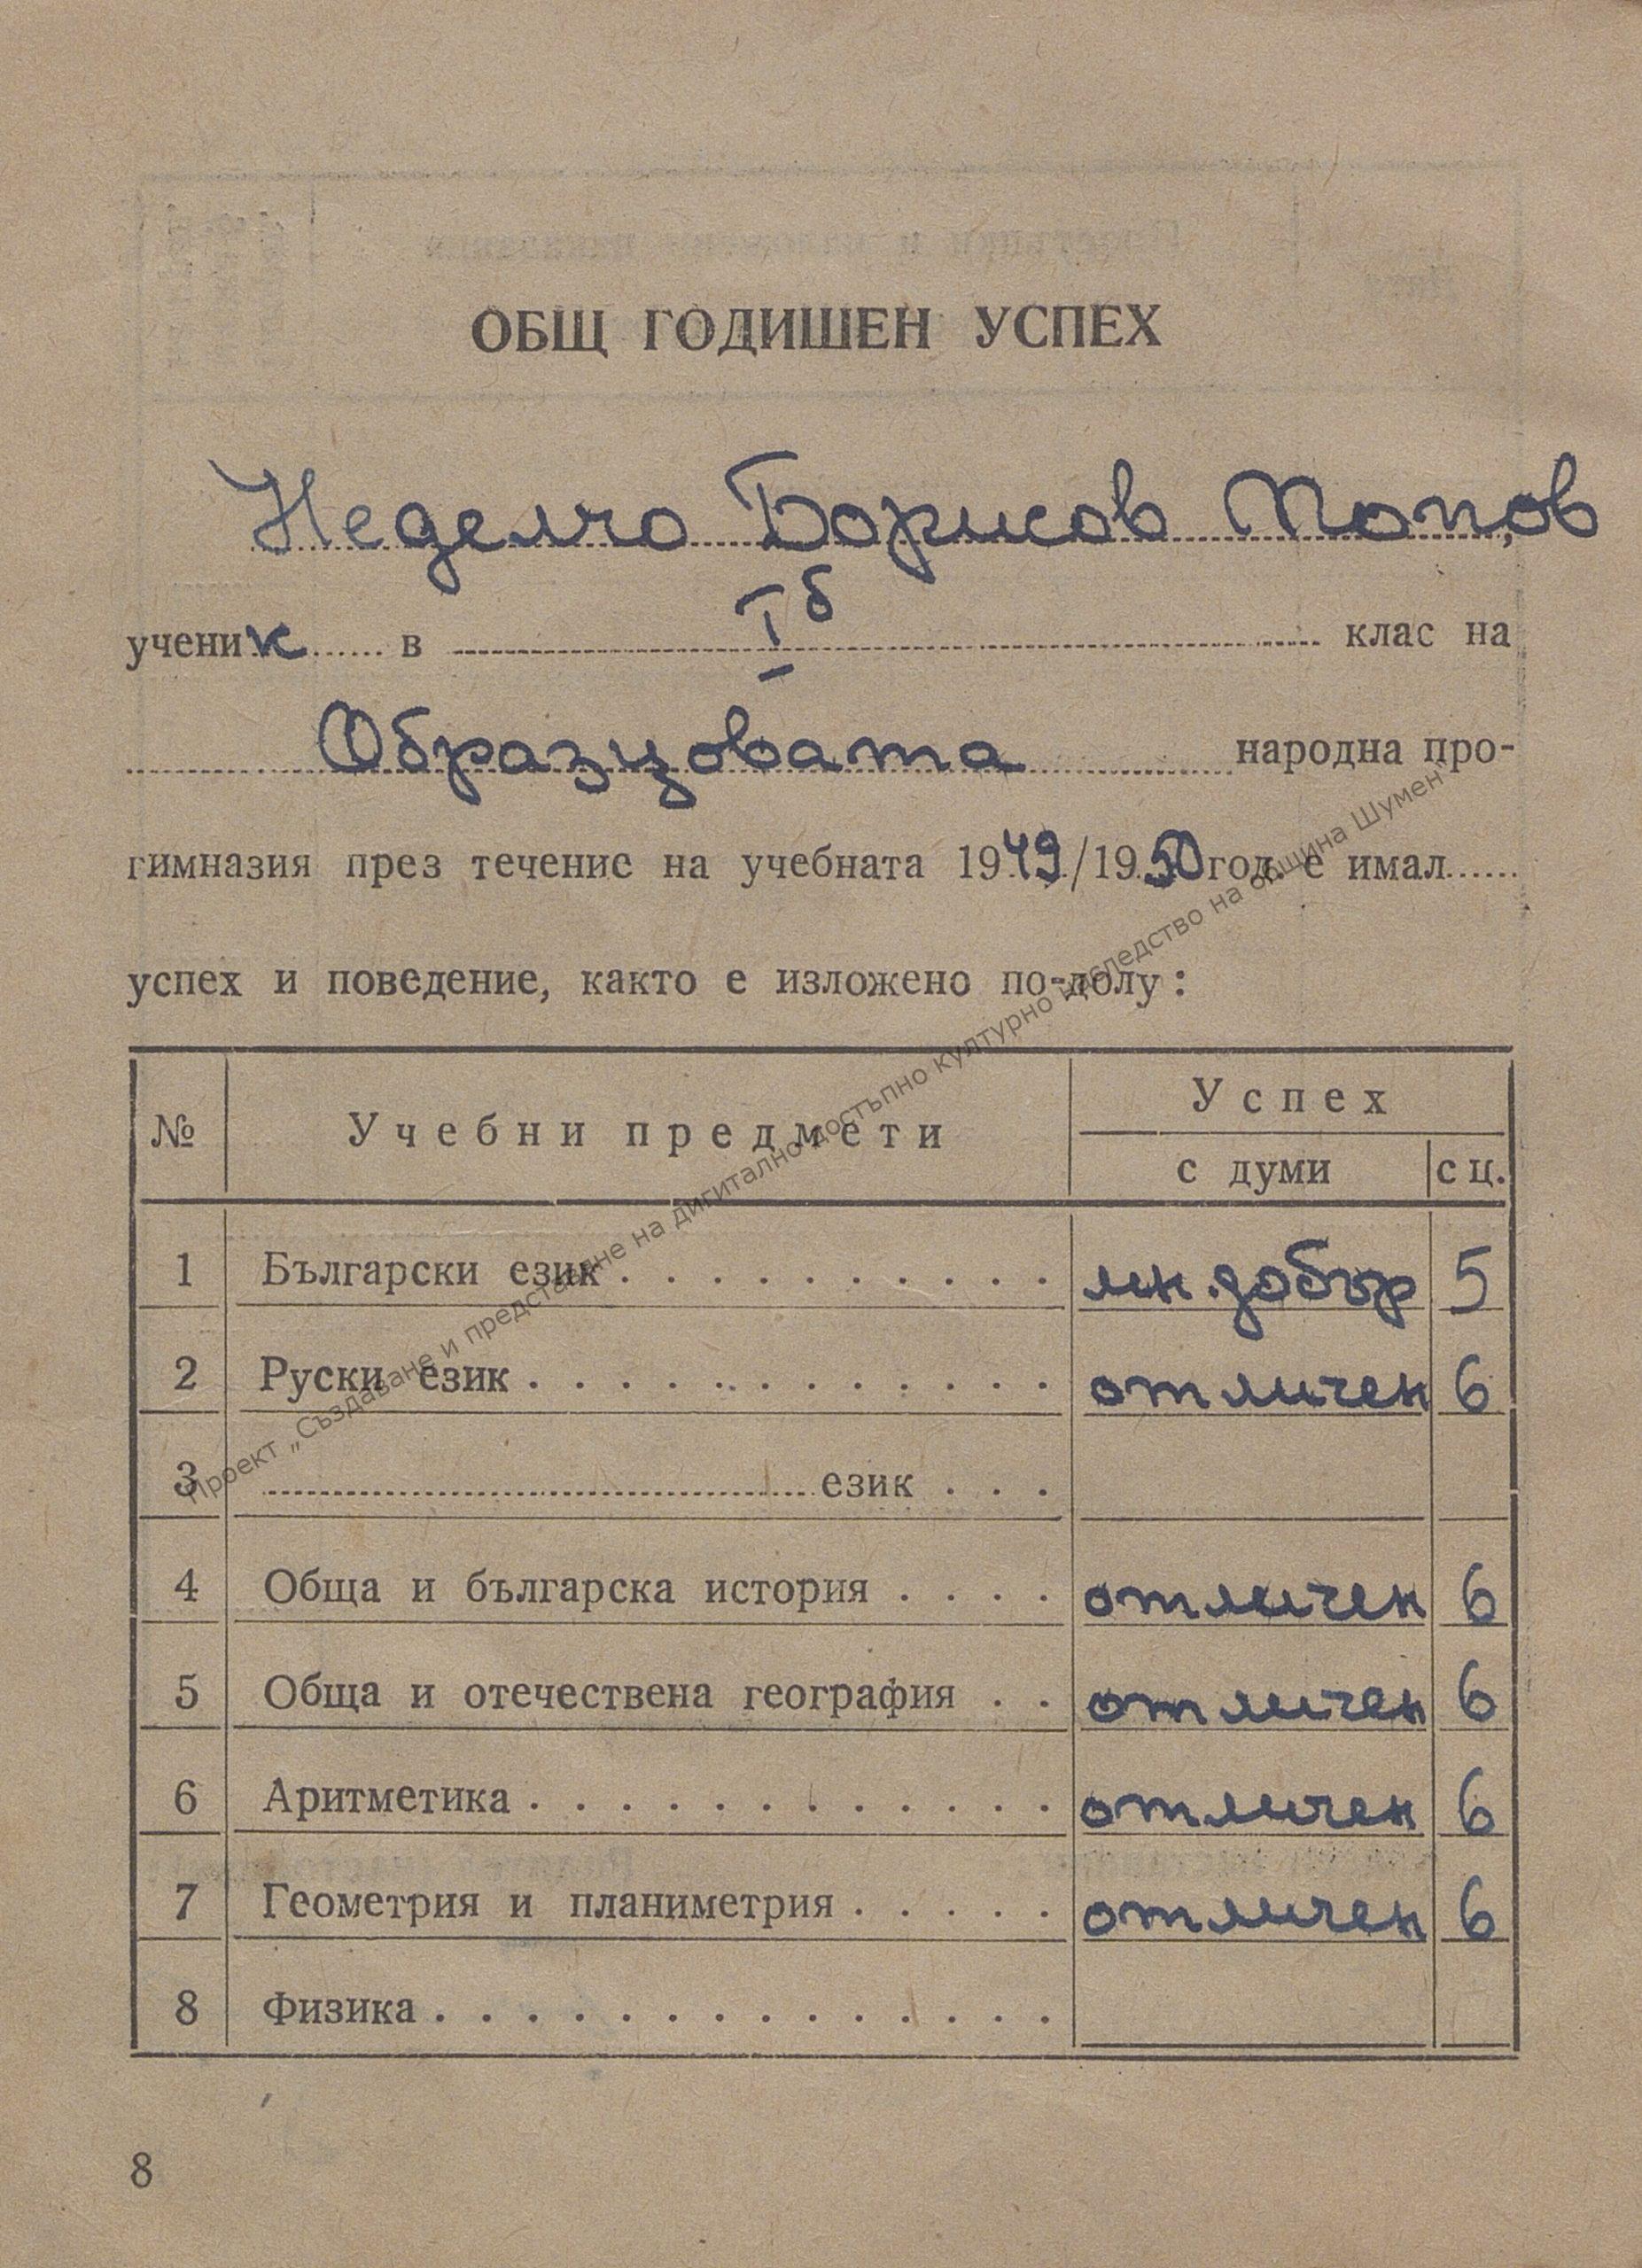 ОБЩ ГОДИШЕН УСПЕХ
Неделчо Борисов Попов,
ученик...... в Iб клас на
Образцовата народна про-
гимназия през течение на учебната 1949/1950 год. е имал......
успех и поведение, както е изложено по-долу:
№ Учебни предмети Успех
с думи с ц.
1 Български език . . . . . . . . . . мн. добър 5
2 Руски език . . . . . . . . . . . . отличен 6
3 ........................ език . . .
4 Обща и българска история . . . . отличен 6
5 Обща и отечествена география . . отличен 6
6 Аритметика . . . . . . . . . . . . отличен 6
7 Геометрия и планиметрия . . . . . отличен 6
8 Физика . . . . . . . . . . . . . .
8
Проект „Създаване и представяне на дигитално достъпно културно наследство на община Шумен“